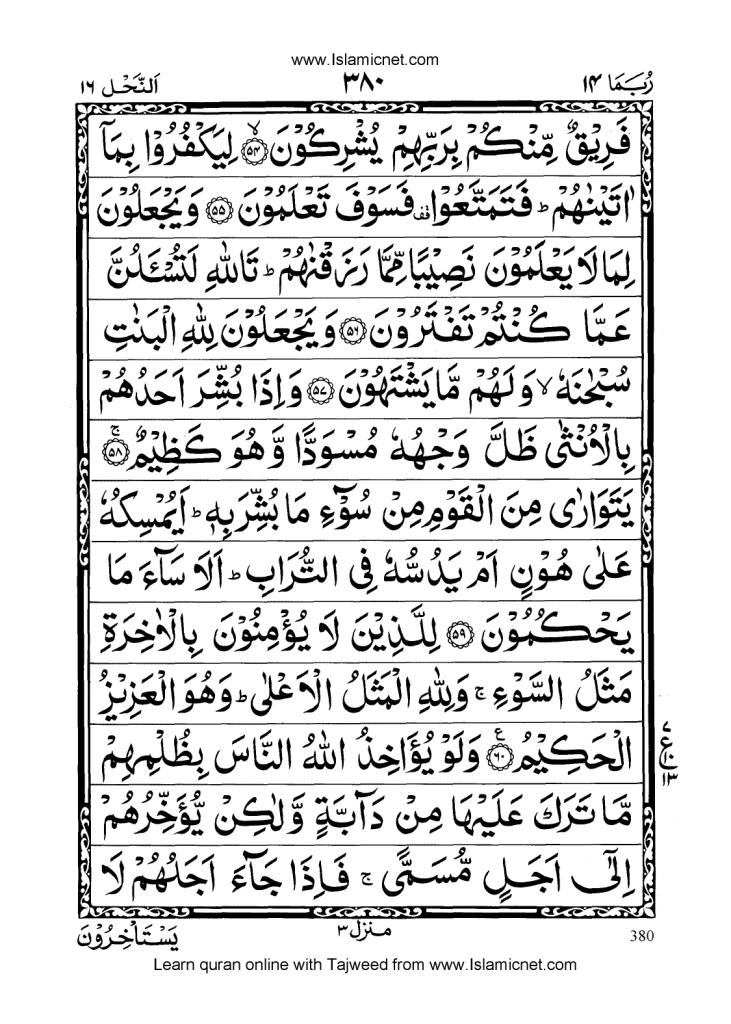 www.Islamicnet.com
رُبَمَا ١٤ ٣٨٠ اَلنَّحْل ١٦
فَرِيْقٌ مِّنْكُمْ بِرَبِّهِمْ يُشْرِكُوْنَ ۙ﴿۵۴﴾ لِيَكْفُرُوْا بِمَاۤ
اٰتَيْنٰهُمْ ؕ فَتَمَتَّعُوْا ۟ قف فَسَوْفَ تَعْلَمُوْنَ ﴿۵۵﴾ وَيَجْعَلُوْنَ
لِمَا لَا يَعْلَمُوْنَ نَصِيْبًا مِّمَّا رَزَقْنٰهُمْ ؕ تَاللّٰهِ لَتُسْـَٔلُنَّ
عَمَّا كُنْتُمْ تَفْتَرُوْنَ ﴿۵۶﴾ وَيَجْعَلُوْنَ لِلّٰهِ الْبَنٰتِ
سُبْحٰنَهٗ ۙ وَلَهُمْ مَّا يَشْتَهُوْنَ ﴿۵۷﴾ وَاِذَا بُشِّرَ اَحَدُهُمْ
بِالْاُنْثٰى ظَلَّ وَجْهُهٗ مُسْوَدًّا وَّهُوَ كَظِيْمٌ ۚ﴿۵۸﴾
يَتَوَارٰى مِنَ الْقَوْمِ مِنْ سُوْٓءِ مَا بُشِّرَ بِهٖ ؕ اَيُمْسِكُهٗ
عَلٰى هُوْنٍ اَمْ يَدُسُّهٗ فِى التُّرَابِ ؕ اَلَا سَآءَ مَا
يَحْكُمُوْنَ ﴿۵۹﴾ لِلَّذِيْنَ لَا يُؤْمِنُوْنَ بِالْاٰخِرَةِ
مَثَلُ السَّوْءِ ۚ وَلِلّٰهِ الْمَثَلُ الْاَعْلٰى ؕ وَهُوَ الْعَزِيْزُ
الْحَكِيْمُ ﴿۶۰﴾ ع وَلَوْ يُؤَاخِذُ اللّٰهُ النَّاسَ بِظُلْمِهِمْ
مَّا تَرَكَ عَلَيْهَا مِنْ دَآبَّةٍ وَّلٰكِنْ يُّؤَخِّرُهُمْ
اِلٰٓى اَجَلٍ مُّسَمًّى ۚ فَاِذَا جَآءَ اَجَلُهُمْ لَا
٧
ع ١٠
١٣
يَسْتَاْخِرُوْنَ منزل ٣ 380
Learn quran online with Tajweed from www.Islamicnet.com